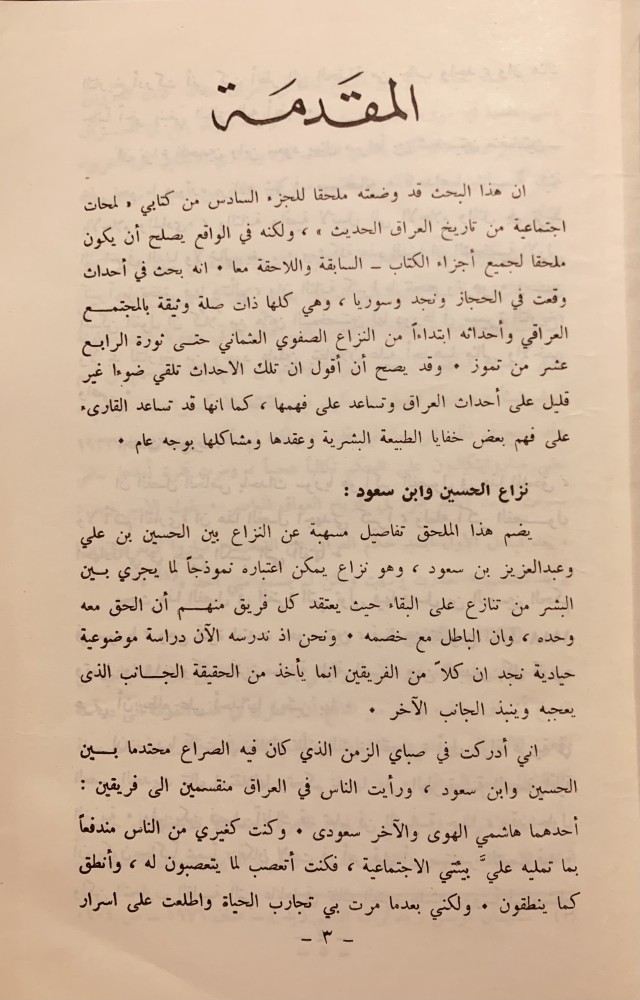 المقدمة
ان هذا البحث قد وضعته ملحقا للجزء السادس من كتابي « لمحات
اجتماعية من تاريخ العراق الحديث » ، ولكنه في الواقع يصلح أن يكون
ملحقا لجميع أجزاء الكتاب ـ السابقة واللاحقة معا • انه بحث في أحداث
وقعت في الحجاز ونجد وسوريا ، وهي كلها ذات صلة وثيقة بالمجتمع
العراقي وأحداثه ابتداءاً من النزاع الصفوي العثماني حتى ثورة الرابع
عشر من تموز • وقد يصح أن أقول ان تلك الاحداث تلقي ضوءا غير
قليل على أحداث العراق وتساعد على فهمها ، كما انها قد تساعد القارىء
على فهم بعض خفايا الطبيعة البشرية وعقدها ومشاكلها بوجه عام •
نزاع الحسين وابن سعود :
يضم هذا الملحق تفاصيل مسهبة عن النزاع بين الحسين بن علي
وعبدالعزيز بن سعود ، وهو نزاع يمكن اعتباره نموذجاً لما يجري بين
البشر من تنازع على البقاء حيث يعتقد كل فريق منهم أن الحق معه
وحده ، وان الباطل مع خصمه • ونحن اذ ندرسه الآن دراسة موضوعية
حيادية نجد ان كلاً من الفريقين انما يأخذ من الحقيقة الجانب الذى
يعجبه وينبذ الجانب الآخر •
اني أدركت في صباي الزمن الذي كان فيه الصراع محتدما بين
الحسين وابن سعود ، ورأيت الناس في العراق منقسمين الى فريقين :
أحدهما هاشمي الهوى والآخر سعودى • وكنت كغيري من الناس مندفعاً
بما تمليه عليَّ بيئتي الاجتماعية ، فكنت أتعصب لما يتعصبون له ، وأنطق
كما ينطقون • ولكني بعدما مرت بي تجارب الحياة واطلعت على اسرار
ـ ٣ ـ